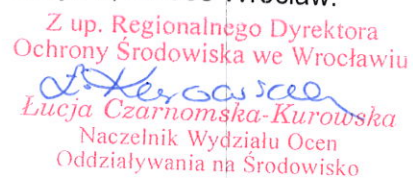 Wrocław.
Z up. Regionalnego Dyrektora
Ochrony Środowiska we Wrocławiu
Łucja Czarnomska-Kurowska
Naczelnik Wydziału Ocen
Oddziaływania na Środowisko